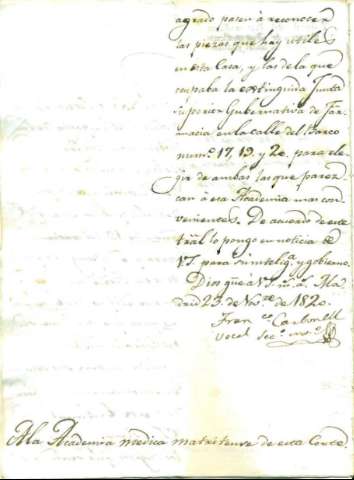 agrado pasen à reconocer
las piezas que hay utiles
en esta Casa, y las de la que
ocupaba la extinguida Junta
superior Gubernativa de Far-
macia en la calle del Barco
num.º 17, 19, y 20. para ele-
gir de ambas las que parez-
can á esa Academia mas con-
venientes. De acuerdo de este
tral lo pongo en noticia de
VS. para su intelig.ª y gobierno.
Dios gue à VS. m.s a.s Ma-
drid 23. de Nov.re de 1820.
Fran.co Carbonell
Vocal Sec.º
A la Academia medica matritense de esta Corte.